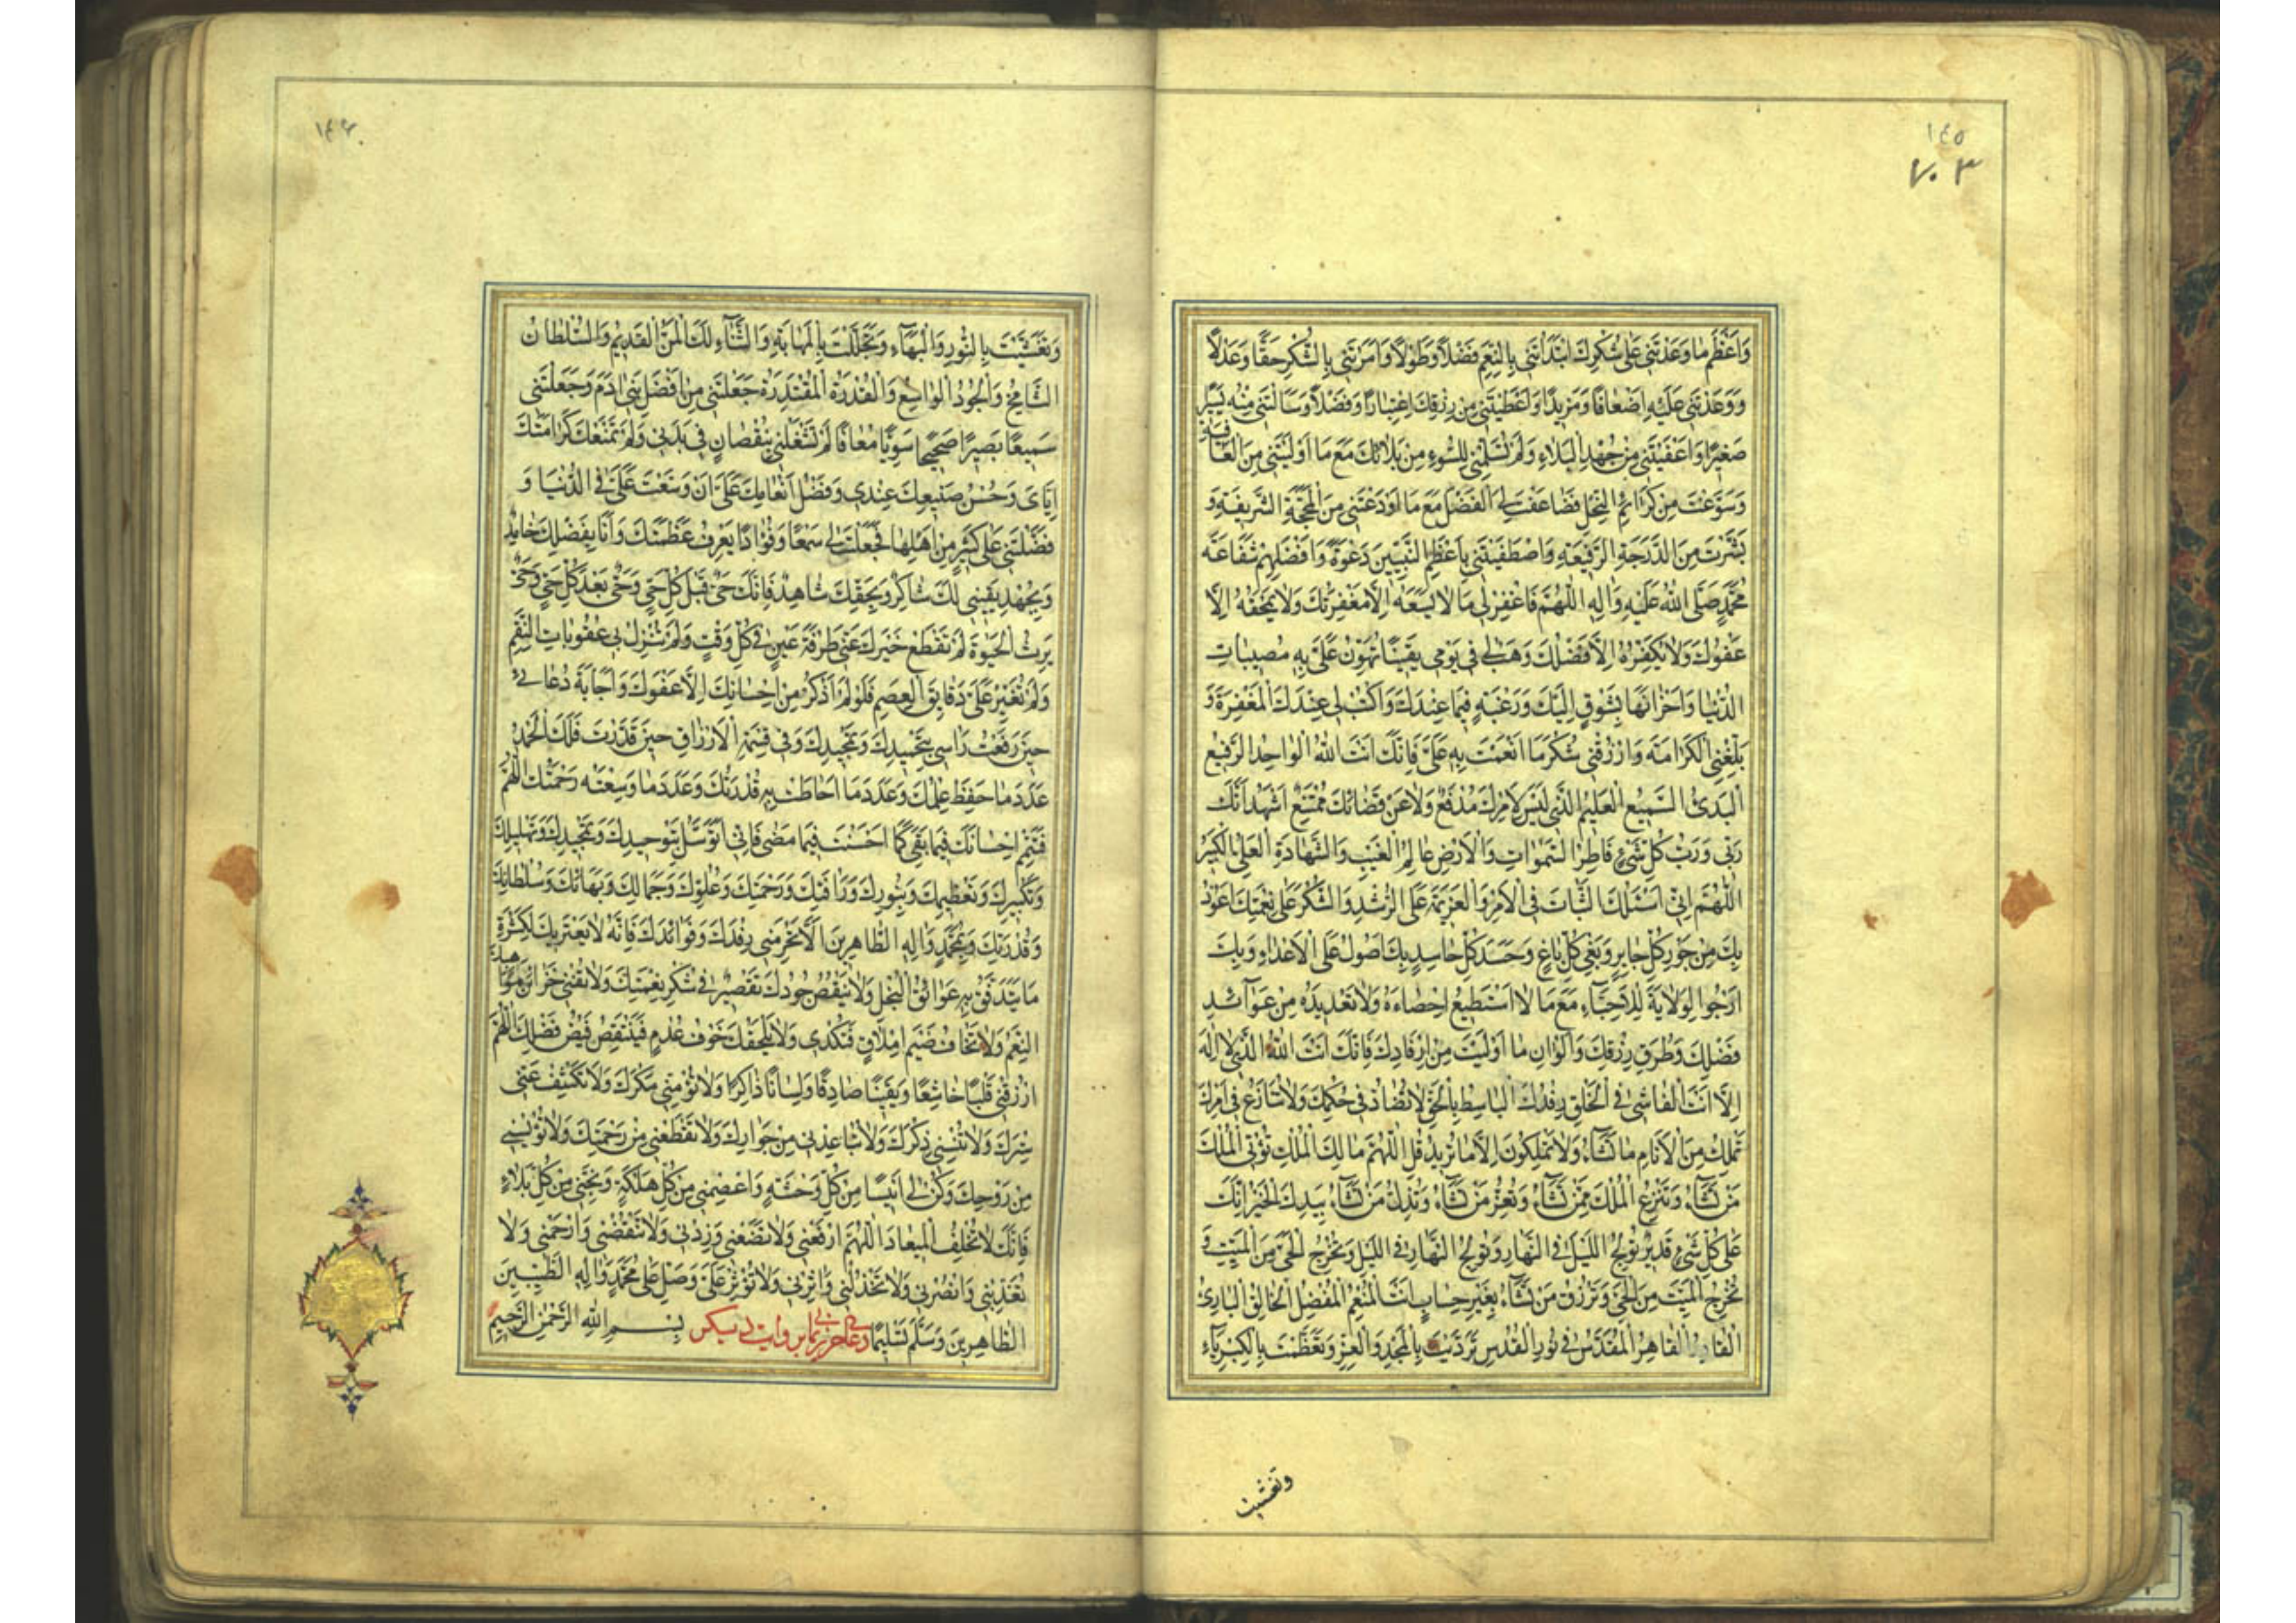 ١٤٥
٧٠٣
وَاَعْظَمَ مٰا وَعَدْتَنٖي عَلٰى شُكْرِكَ ابْتَدَاْتَنٖي بِالنِّعَمِ فَضْلاً وَطَوْلاً وَاَمَرْتَنٖي بِالشُّكْرِ حَقًّا وَعَدْلاً
وَوَعَدْتَنٖي عَلَيْهِ اَضْعٰافًا وَمَزٖيدًا وَاَعْطَيْتَنٖي مِنْ رِزْقِكَ اعْتِبٰارًا وَفَضْلاً وَسَاَلْتَنٖي مِنْهُ يَسٖيرًا
صَغٖيرًا وَاَعْفَيْتَنٖي مِنْ جُهْدِ الْبَلٰاءِ وَلَمْ تُسْلِمْنٖي لِلسُّوءِ مِنْ بَلٰائِكَ مَعَ مٰا اَوْلَيْتَنٖي مِنَ الْعٰافِيَةِ
وَسَوَّغْتَ مِنْ كَرٰائِمِ النِّحَلِ فَضٰاعَفْتَ لِيَ الْفَضْلَ مَعَ مٰا اَوْدَعْتَنٖي مِنَ الْمَحَجَّةِ الشَّرٖيفَةِ وَ
بَشَّرْتَ مِنَ الدَّرَجَةِ الرَّفٖيعَةِ وَاصْطَفَيْتَنٖي بِاَعْظَمِ النَّبِيّٖينَ دَعْوَةً وَاَفْضَلِهِمْ شَفٰاعَةً
مُحَمَّدٍ صَلَّى اللهُ عَلَيْهِ وَاٰلِهِ اَللّٰهُمَّ فَاغْفِرْ لٖي مٰا لٰا يَسَعُهُ اِلَّا مَغْفِرَتُكَ وَلٰا يَمْحَقُهُ اِلَّا
عَفْوُكَ وَلٰا يُكَفِّرُهُ اِلَّا فَضْلُكَ وَهَبْ لٖي فٖي يَوْمٖي يَقٖينًا تُهَوِّنُ عَلَيَّ بِهِ مُصٖيبٰاتِ
الدُّنْيٰا وَاَحْزٰانَهٰا بِشَوْقٍ اِلَيْكَ وَرَغْبَةٍ فٖيمٰا عِنْدَكَ وَاكْتُبْ لٖي عِنْدَكَ الْمَغْفِرَةَ وَ
بَلِّغْنِي الْكَرٰامَةَ وَارْزُقْنٖي شُكْرَ مٰا اَنْعَمْتَ بِهِ عَلَيَّ فَاِنَّكَ اَنْتَ اللهُ الْوٰاحِدُ الرَّفٖيعُ
الْبَدٖيءُ السَّمٖيعُ الْعَلٖيمُ الَّذٖي لَيْسَ لِاَمْرِكَ مَدْفَعٌ وَلٰا عَنْ قَضٰائِكَ مُمْتَنِعٌ اَشْهَدُ اَنَّكَ
رَبّٖي وَرَبُّ كُلِّ شَيْءٍ فٰاطِرُ السَّمٰوٰاتِ وَالْاَرْضِ عٰالِمُ الْغَيْبِ وَالشَّهٰادَةِ الْعَلِيُّ الْكَبٖيرُ
اَللّٰهُمَّ اِنّٖي اَسْئَلُكَ الثَّبٰاتَ فِي الْاَمْرِ وَالْعَزٖيمَةَ عَلَى الرُّشْدِ وَالشُّكْرَ عَلٰى نِعْمَتِكَ اَعُوذُ
بِكَ مِنْ جَوْرِ كُلِّ جٰايِرٍ وَبَغْيِ كُلِّ بٰاغٍ وَحَسَدِ كُلِّ حٰاسِدٍ بِكَ اَصُولُ عَلَى الْاَعْدٰاءِ وَبِكَ
اَرْجُوا لِوَلٰايَةَ لِلْاَحِبّٰاءِ مَعَ مٰا لٰا اَسْتَطٖيعُ اِحْصٰاءَهُ وَلٰا تَعْدٖيدَهُ مِنْ عَوٰائِدِ
فَضْلِكَ وَطُرَفِ رِزْقِكَ وَاَلْوٰانِ مٰا اَوْلَيْتَ مِنْ اِرْفٰادِكَ فَاِنَّكَ اَنْتَ اللهُ الَّذٖي لٰا اِلٰهَ
اِلَّا اَنْتَ الْفٰاشٖي فِي الْخَلْقِ رِفْدُكَ الْبٰاسِطُ بِالْحَقِّ لٰا تُضٰادُّ فٖي حُكْمِكَ وَلٰا تُنٰازَعُ فٖي اَمْرِكَ
تَمْلِكُ مِنَ الْاَنٰامِ مٰا تَشٰاءُ وَلٰا يَمْلِكُونَ اِلَّا مٰا تُرٖيدُ قُلِ اللّٰهُمَّ مٰالِكَ الْمُلْكِ تُؤْتِي الْمُلْكَ
مَنْ تَشٰاءُ وَتَنْزِعُ الْمُلْكَ مِمَّنْ تَشٰاءُ وَتُعِزُّ مَنْ تَشٰاءُ وَتُذِلُّ مَنْ تَشٰاءُ بِيَدِكَ الْخَيْرُ اِنَّكَ
عَلٰى كُلِّ شَيْءٍ قَدٖيرٌ تُولِجُ اللَّيْلَ فِي النَّهٰارِ وَتُولِجُ النَّهٰارَ فِي اللَّيْلِ وَتُخْرِجُ الْحَيَّ مِنَ الْمَيِّتِ وَ
تُخْرِجُ الْمَيِّتَ مِنَ الْحَيِّ وَتَرْزُقُ مَنْ تَشٰاءُ بِغَيْرِ حِسٰابٍ اَنْتَ الْمُنْعِمُ الْمُفْضِلُ الْخٰالِقُ الْبٰارِئُ
الْقٰادِرُ الْقٰاهِرُ الْمُقَدَّسُ فٖي نُورِ الْقُدْسِ تَرَدَّيْتَ بِالْمَجْدِ وَالْعِزِّ وَتَعَظَّمْتَ بِالْكِبْرِيٰاءِ
وتغشيت
١٤٦
وَتَغَشَّيْتَ بِالنُّورِ وَالْبَهٰاءِ وَتَجَلَّلْتَ بِالْمَهٰابَةِ وَالثَّنٰاءِ لَكَ الْمَنُّ الْقَدٖيمُ وَالسُّلْطٰانُ
الشّٰامِخُ وَالْجُودُ الْوٰاسِعُ وَالْقُدْرَةُ الْمُقْتَدِرَةُ جَعَلْتَنٖي مِنْ اَفْضَلِ بَنٖي اٰدَمَ وَجَعَلْتَنٖي
سَمٖيعًا بَصٖيرًا صَحٖيحًا سَوِيًّا مُعٰافًا لَمْ تَشْغَلْنٖي بِنُقْصٰانٍ فٖي بَدَنٖي وَلَمْ تَمْنَعْكَ كَرٰامَتُكَ
اِيّٰايَ وَحُسْنُ صَنٖيعِكَ عِنْدٖي وَفَضْلُ اِنْعٰامِكَ عَلَيَّ اَنْ وَسَّعْتَ عَلَيَّ فِي الدُّنْيٰا وَ
فَضَّلْتَنٖي عَلٰى كَثٖيرٍ مِنْ اَهْلِهٰا فَجَعَلْتَ لٖي سَمْعًا وَفُوٰادًا يَعْرِفُ عَظَمَتَكَ وَاَنَا بِفَضْلِكَ حٰامِدٌ
وَبِجُهْدِ يَقٖينٖي لَكَ شٰاكِرٌ وَبِحَقِّكَ شٰاهِدٌ فَاِنَّكَ حَيٌّ قَبْلَ كُلِّ حَيٍّ وَحَيٌّ بَعْدَ كُلِّ حَيٍّ وَحَيٌّ
يَرِثُ الْحَيٰوةَ لَمْ تَقْطَعْ خَيْرَكَ عَنّٖي طَرْفَةَ عَيْنٍ فٖي كُلِّ وَقْتٍ وَلَمْ تُنْزِلْ بٖي عُقُوبٰاتِ النِّقَمِ
وَلَمْ تُغَيِّرْ عَلَيَّ دَقٰايِقَ الْعِصَمِ فَلَوْ لَمْ اَذْكُرْ مِنْ اِحْسٰانِكَ اِلَّا عَفْوَكَ وَاِجٰابَةَ دُعٰائٖي
حٖينَ رَفَعْتُ رَاْسٖي بِتَحْمٖيدِكَ وَتَمْجٖيدِكَ وَفٖي قِسْمَةِ الْاَرْزٰاقِ حٖينَ قَدَّرْتَ فَلَكَ الْحَمْدُ
عَدَدَ مٰا حَفِظَ عِلْمُكَ وَعَدَدَ مٰا اَحٰاطَتْ بِهِ قُدْرَتُكَ وَعَدَدَ مٰا وَسِعَتْهُ رَحْمَتُكَ اَللّٰهُمَّ
فَتَمِّمْ اِحْسٰانَكَ فٖيمٰا بَقِيَ كَمٰا اَحْسَنْتَ فٖيمٰا مَضٰى فَاِنّٖي اَتَوَسَّلُ بِتَوْحٖيدِكَ وَتَمْجٖيدِكَ وَتَهْلٖيلِكَ
وَتَكْبٖيرِكَ وَتَعْظٖيمِكَ وَبِنُورِكَ وَرَاْفَتِكَ وَرَحْمَتِكَ وَعُلُوِّكَ وَجَمٰالِكَ وَبَهٰائِكَ وَسُلْطٰانِكَ
وَقُدْرَتِكَ وَبِمُحَمَّدٍ وَاٰلِهِ الطّٰاهِرٖينَ اَلَّا تَحْرِمَنٖي رِفْدَكَ وَفَوٰائِدَكَ فَاِنَّهُ لٰا يَعْتَرٖيكَ لِكَثْرَةِ
مٰا يَتَدَفَّقُ بِهِ عَوٰائِقُ الْبُخْلِ وَلٰا يَنْقُصُ جُودَكَ تَقْصٖيرٌ فٖي شُكْرِ نِعْمَتِكَ وَلٰا تُفْنٖي خَزٰائِنَ مَوٰاهِبِكَ
النِّعَمُ وَلٰا تَخٰافُ ضَيْمَ اِمْلٰاقٍ فَتُكْدٖي وَلٰا يَلْحَقُكَ خَوْفُ عُدْمٍ فَيَنْتَقِصَ فَيْضُ فَضْلِكَ اَللّٰهُمَّ
ارْزُقْنٖي قَلْبًا خٰاشِعًا وَيَقٖينًا صٰادِقًا وَلِسٰانًا ذٰاكِرًا وَلٰا تُؤْمِنّٖي مَكْرَكَ وَلٰا تَكْشِفْ عَنّٖي
سِتْرَكَ وَلٰا تُنْسِنٖي ذِكْرَكَ وَلٰا تُبٰاعِدْنٖي مِنْ جِوٰارِكَ وَلٰا تَقْطَعْنٖي مِنْ رَحْمَتِكَ وَلٰا تُؤْيِسْنٖي
مِنْ رَوْحِكَ وَكُنْ لٖي اَنٖيسًا مِنْ كُلِّ وَحْشَةٍ وَاعْصِمْنٖي مِنْ كُلِّ هَلَكَةٍ وَنَجِّنٖي مِنْ كُلِّ بَلٰاءٍ
فَاِنَّكَ لٰا تُخْلِفُ الْمٖيعٰادَ اَللّٰهُمَّ ارْفَعْنٖي وَلٰا تَضَعْنٖي وَزِدْنٖي وَلٰا تَنْقُصْنٖي وَارْحَمْنٖي وَلٰا
تُعَذِّبْنٖي وَانْصُرْنٖي وَلٰا تَخْذُلْنٖي وَاٰثِرْنٖي وَلٰا تُؤْثِرْ عَلَيَّ وَصَلِّ عَلٰى مُحَمَّدٍ وَاٰلِهِ الطَّيِّبٖينَ
الطّٰاهِرٖينَ وَسَلَّمَ تَسْلٖيمًا دعاى حرز يمانى بروايت ديكر بِسْمِ اللهِ الرَّحْمٰنِ الرَّحٖيمِ